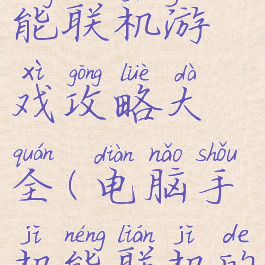 能联机游
xì gōng lüè dà
戏攻略大
quán diàn nǎo shǒu
全(电脑手
jī néng lián jī de
机能联机的